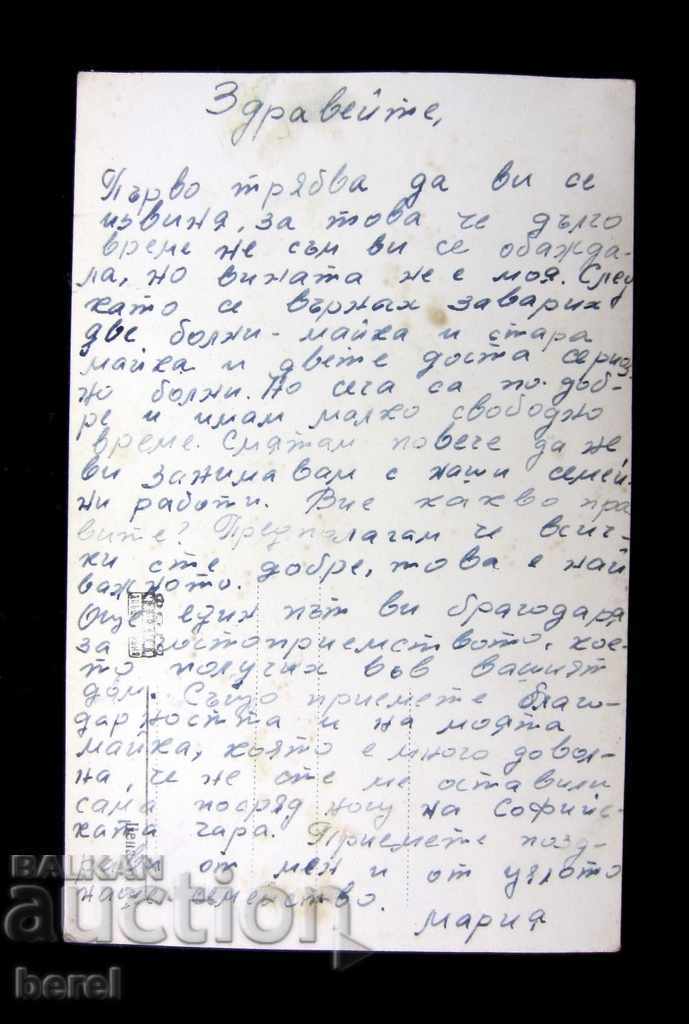 Здравейте,
Първо трябва да ви се
извиня, за това че дълго
време не съм ви се обажда-
ла, но вината не е моя. След
като се върнах заварих
две болни - майка и стара
майка и двете доста сериоз-
но болни. Но сега са по-доб-
ре и имам малко свободно
време. Смятам повече да не
ви занимавам с наши семей-
ни работи. Вие какво пра
вите? Предполагам че всич-
ки сте добре, това е най
важното.
Още един път ви благодаря
за гостоприемството, кое-
то получих във вашият
дом. Също приемете благо-
дарността и на моята
майка, която е много довол-
на, че не сте ме оставили
сама посряд нощ на Софийс-
ката гара. Приемете позд-
рави от мен и от цялото
наше семейство.
Мария
BALKAN
auction
berel